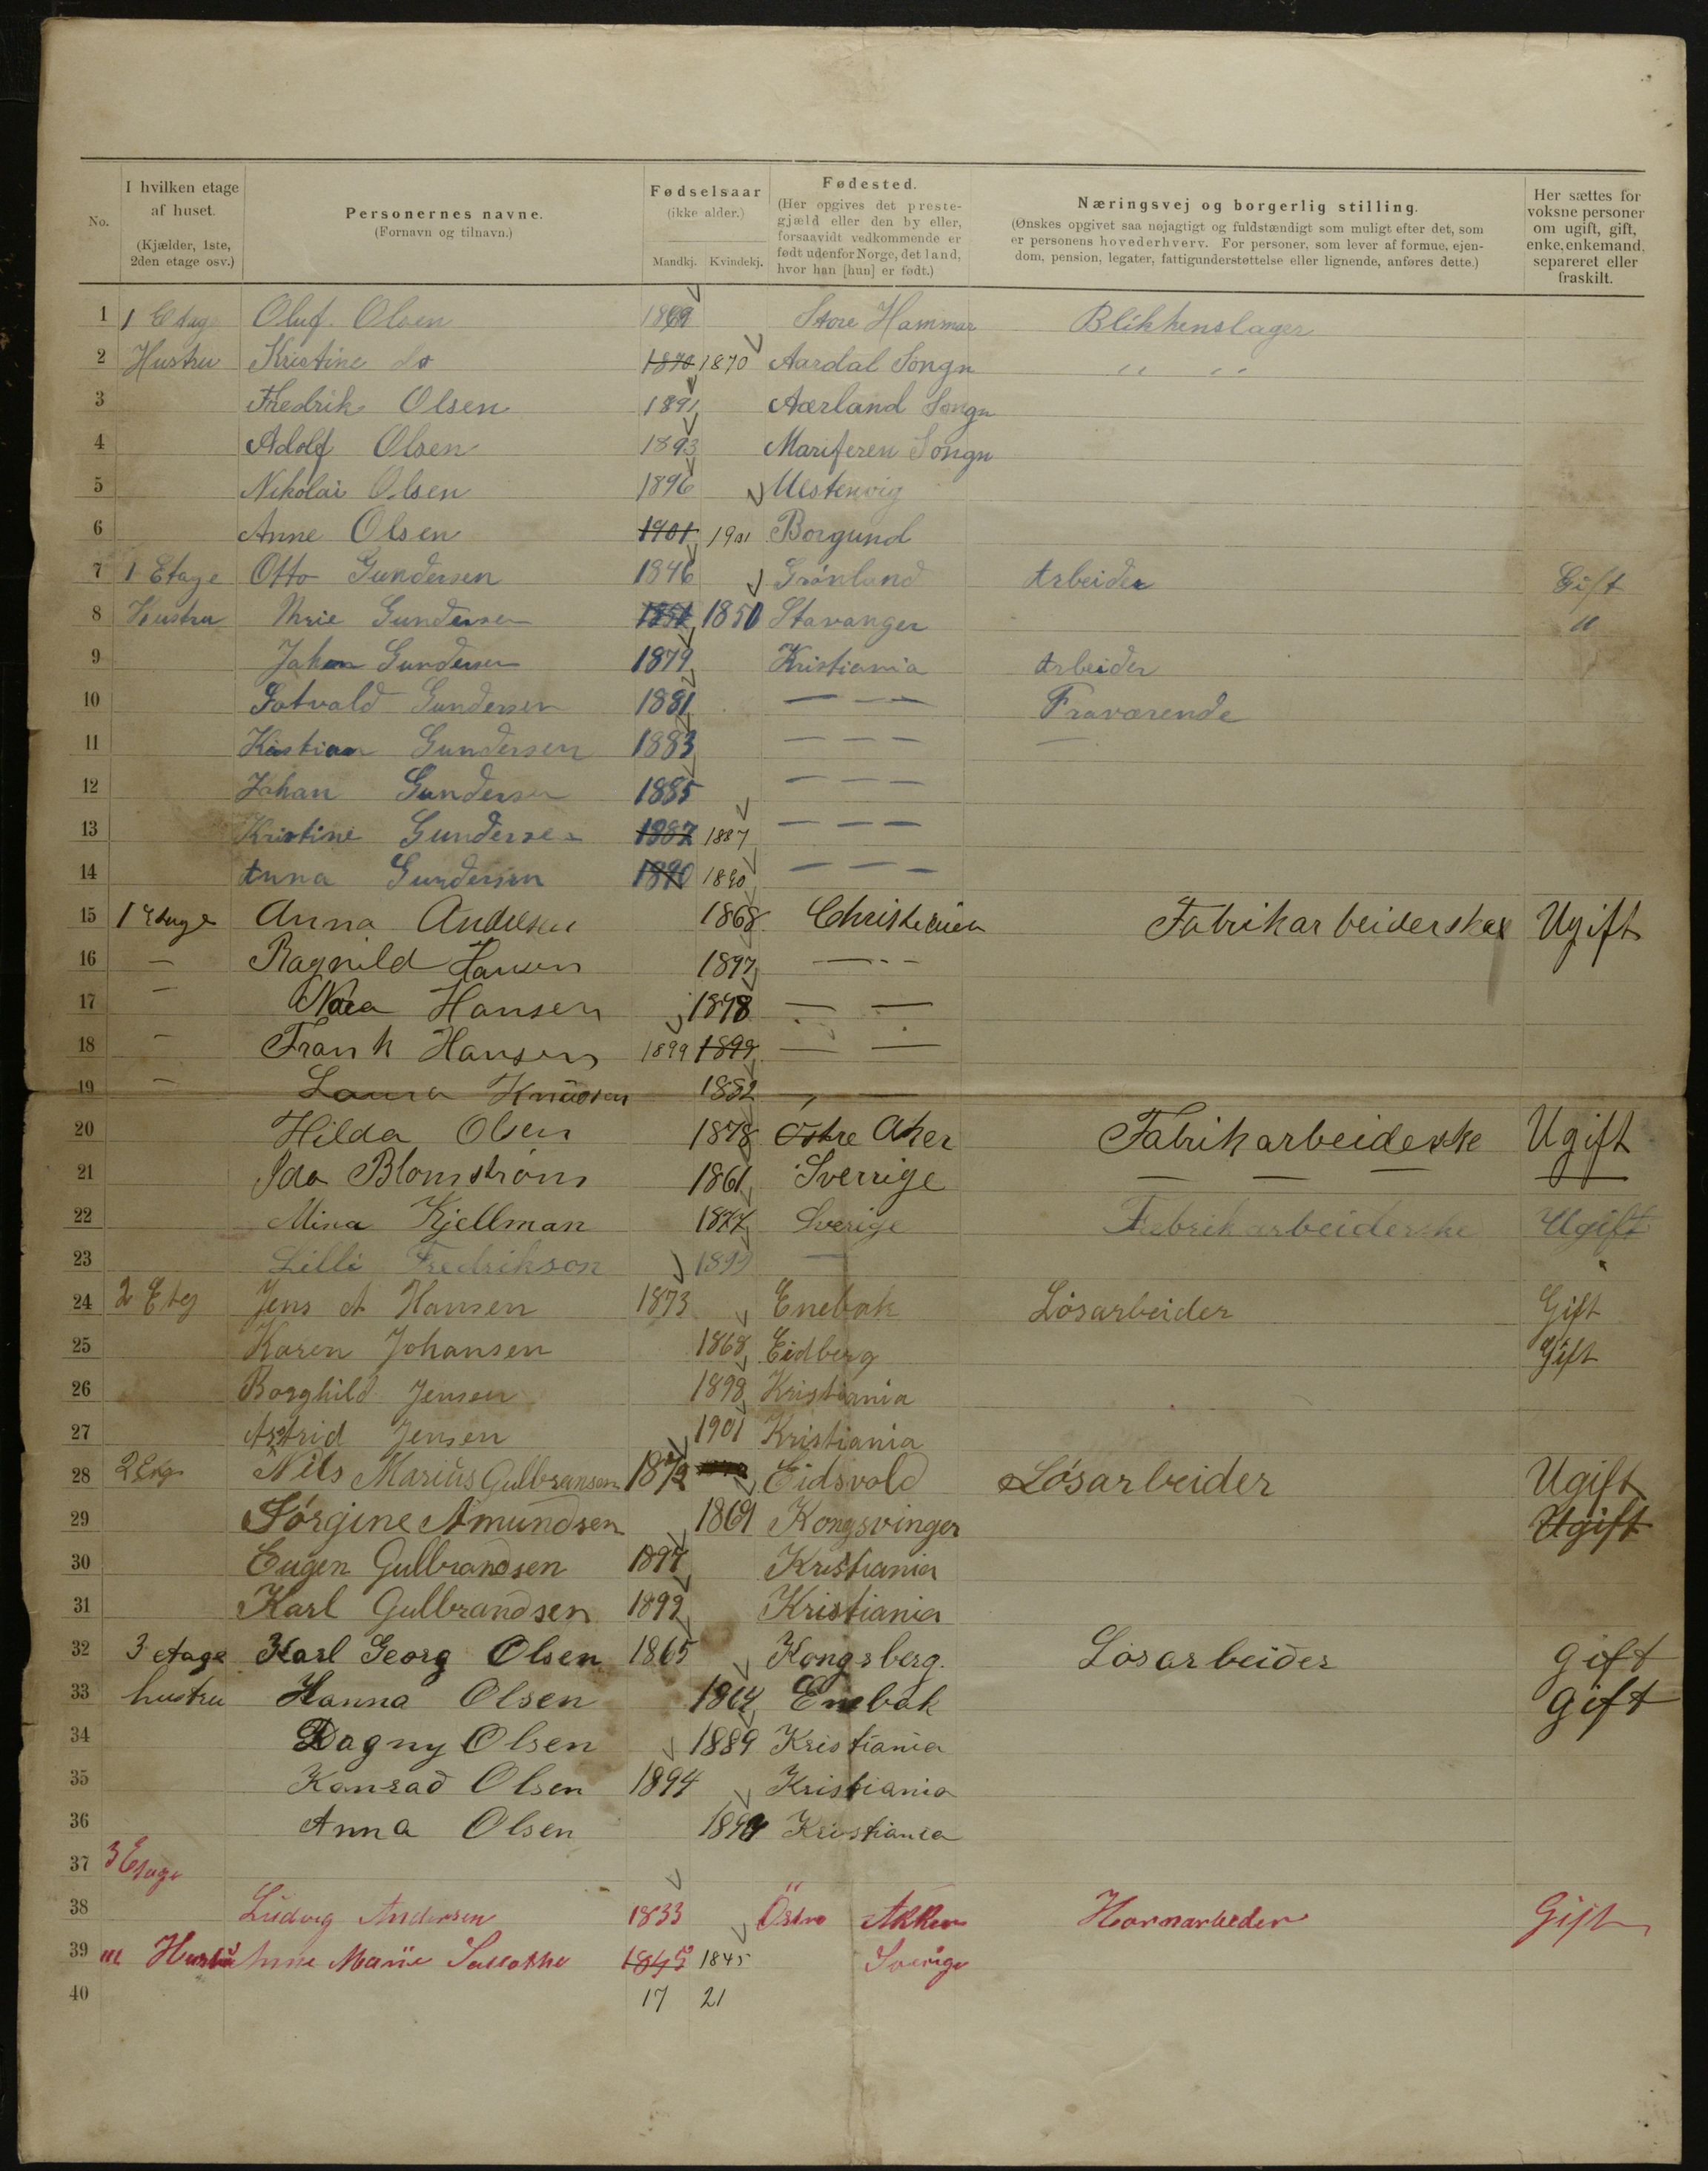 No.
I hvilken etage af huset.
(Kjælder, 1ste, 2den etage osv.)
Personernes navne.
(Fornavn og tilnavn.)
Fødselsaar
(ikke alder.)
Mandkj. Kvindekj.
Fødested.
(Her opgives det prestegjæld eller den by eller, forsaavidt vedkommende er født udenfor Norge, det land, hvor han [hun] er født.)
Næringsvej og borgerlig stilling.
(Ønskes opgivet saa nøjagtigt og fuldstændigt som muligt efter det, som er personens hovederhverv. For personer, som lever af formue, ejendom, pension, legater, fattigunderstøttelse eller lignende, anføres dette.)
Her sættes for voksne personer om ugift, gift, enke, enkemand, separeret eller fraskilt.
1 1 Etage Oluf Olsen 1869 Store Hammar Blikkenslager
2 Hustru Kristine do 1870 1870 Aardal Songn " "
3 Fredrik Olsen 1891 Aærland Songn
4 Adolf Olsen 1893 Mariferen Songn
5 Nikolai Olsen 1896
6 Anne Olsen 1901 1901 Borgund
7 1 Etage Otto Gundersen 1846 Grönland Arbeider Gift
8 Hustru Gundersen 1850 Stavanger "
9 Johan Gundersen 1879 Kristiania Arbeider
10 Gundersen 1881 — — — Fraværende
11 Kristian Gundersen 1883 — — — —
12 Johan Gundersen 1885 — — —
13 Kristine Gundersen 1887 1887 — — —
14 Anna Gundersen 1890 1890 — — —
15 1 Etage Anna Andersen 1868 Christiania Fabrikarbeiderske Ugift
16 — Ragnild Hansen 1897 — - -
17 — Nora Hansen 1898 — —
18 — Frank Hansen 1899 1899 — —
19 — Laura Knudsen 1882 , —
20 Hilda Olsen 1878 Østre Aker Fabrikarbeiderske Ugift
21 Ida Blomström 1861 Sverrige — — — —
22 Mina Kjellman 1877 Sverige Fabrikarbeiderske Ugift
23 Lilli Fredrikson 1899 —
24 2 Etg Jens A Hansen 1873 Enebak Lösarbeider Gift
25 Karen Johansen 1868 Eidberg Gift
26 Borghild Jensen 1898 Kristiania
27 Astrid Jensen 1901 Kristiania
28 2 Etg Nils Marius Gulbransen 1872 Eidsvold Lósarbeider Ugift
29 Jórgine Amundsen 1869 Kongsvinger Ugift
30 Eugen Gulbrandsen 1897 Kristiania
31 Karl Gulbrandsen 1899 Kristiania
32 3 etage Karl Georg Olsen 1865 Kongsberg. Losarbeider gift
33 hustru Hanna Olsen 1864 Enebak gift
34 Dagny Olsen 1889 Kristiania
35 Konrad Olsen 1894 Kristiania
36 Anna Olsen Kristiania
37 3 Etage
38 Ludvig Andersen 1833 Östre Akker Hornarbeder Gift
39 Hustru Anne Marie 1845 1845 Sverige
40 17 21